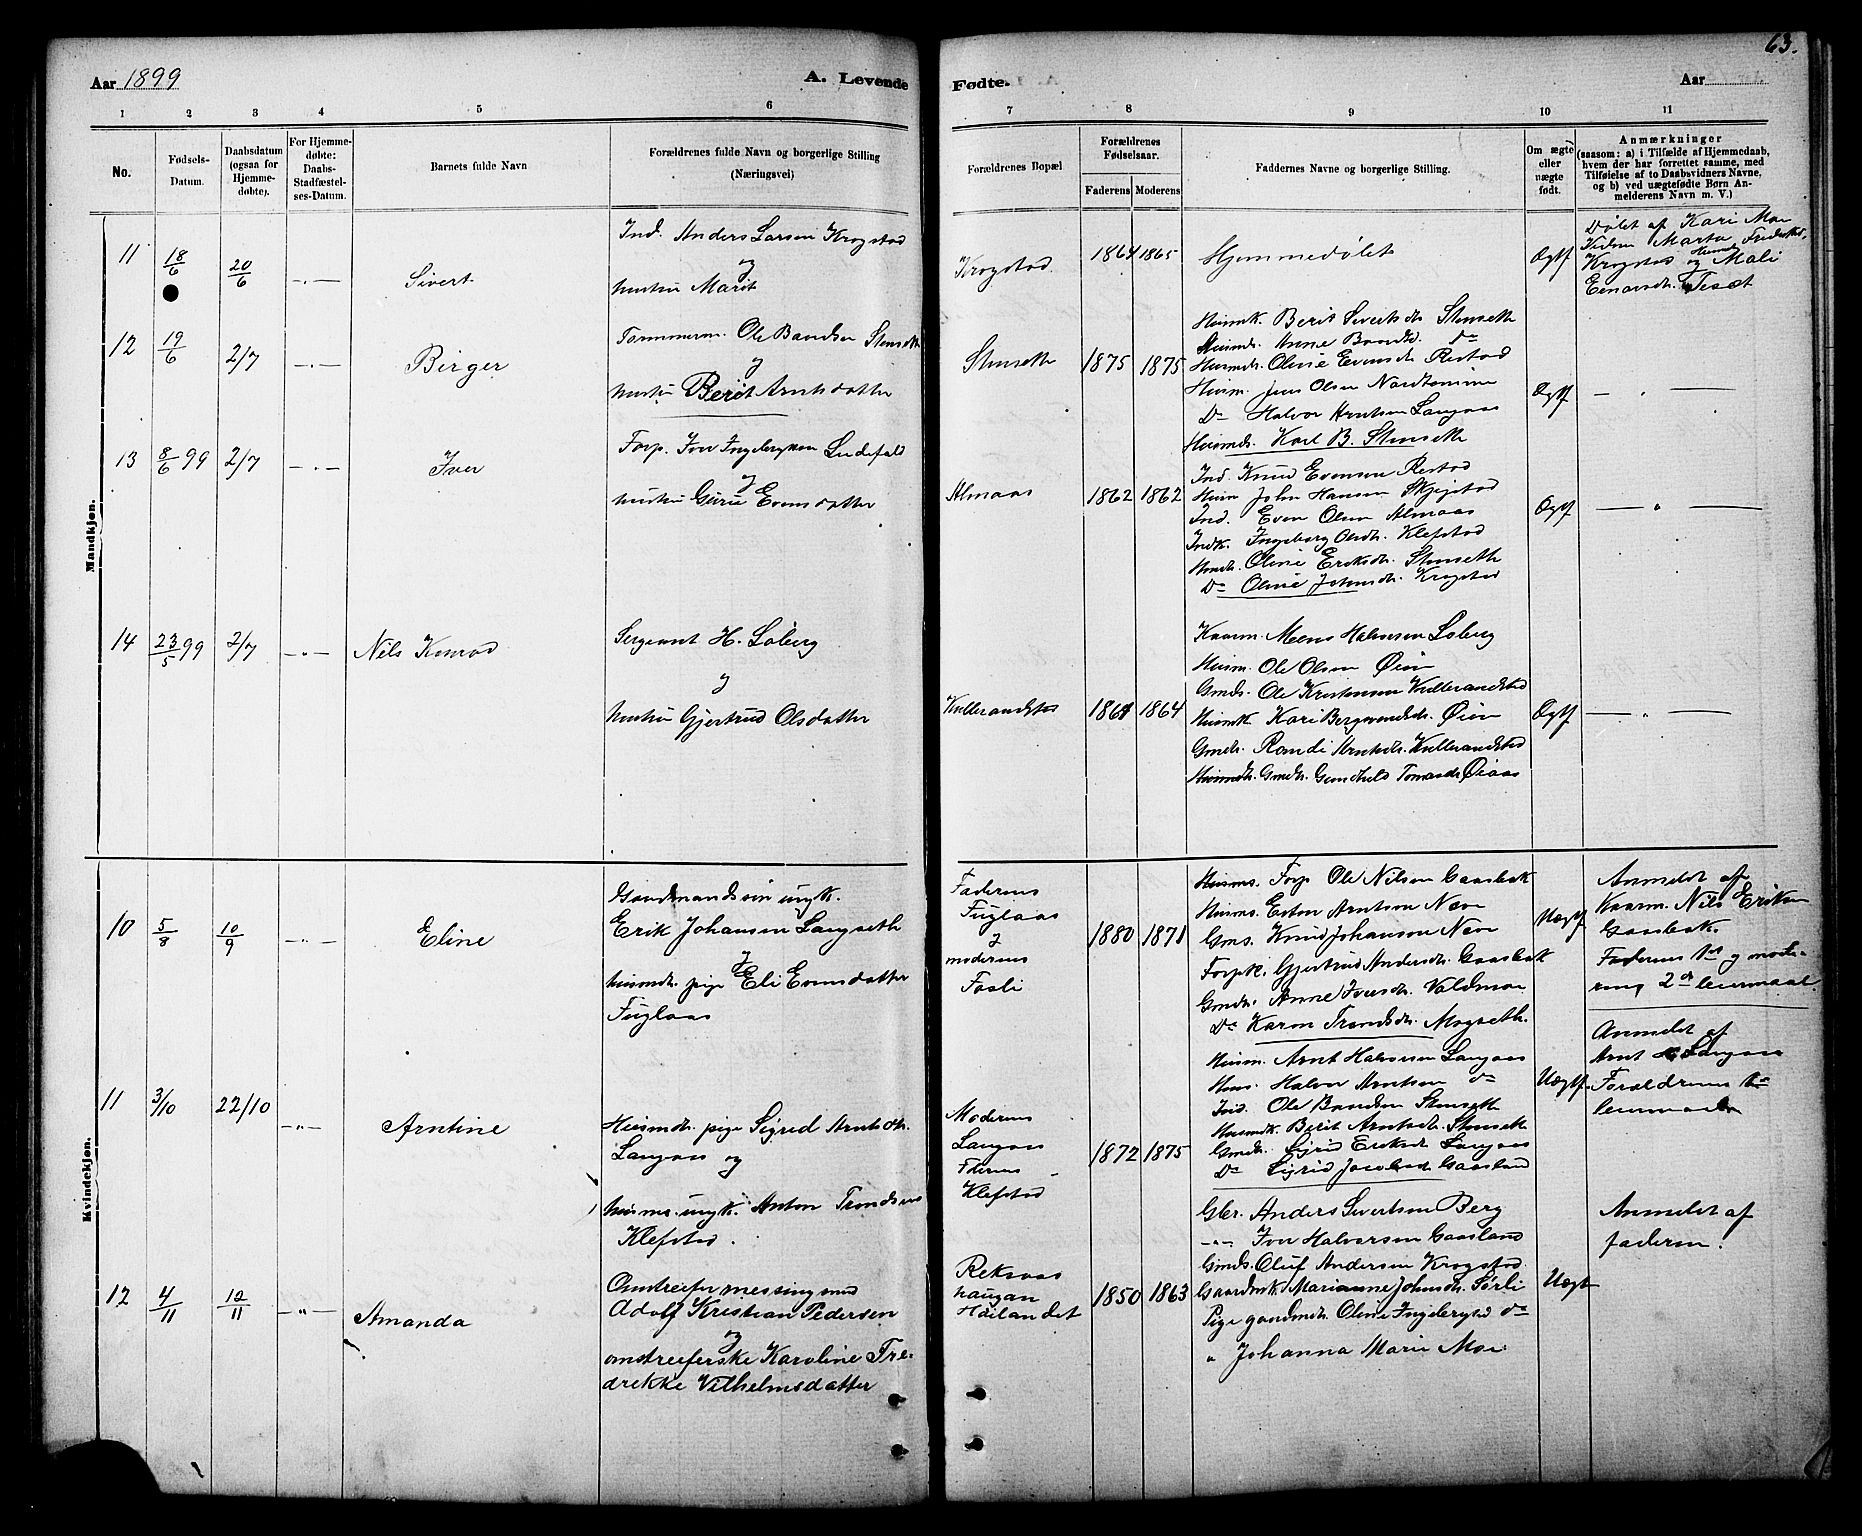 63.
Aar 1899
A. Levende
Fødte.
Aar
1 2 3 4 5 6 7 8 9 10 11
No.
Fødsels-
Datum.
Daabsdatum
(ogsaa for
Hjemme-
døbte).
For Hjemme-
døbte:
Daabs-
Stadfæstel-
ses-Datum.
Barnets fulde Navn
Forældrenes fulde Navn og borgerlige Stilling
(Næringsvei)
Forældrenes Bopæl
Forældrenes
Fødselsaar.
Faderens Moderens
Faddernes Navne og borgerlige Stilling.
Om ægte
eller
uægte
født.
Anmærkninger
(saasom: a) i Tilfælde af Hjemmedaab,
hvem der har forrettet samme, med
Tilføielse af to Daabsvidners Navne,
og b) ved uægtefødte Børn An-
melderens Navn m. V.)
Mandkjøn.
11 18/6 20/6 -"- Sivert
Ind. Anders Larsen Krogstad
og
hustru Marit
Krogstad 1864 1865 Hjemmedøbt Ægtf
Døbt af Kari Moe
Marta
Krogstad og Mali
Einarsdtr. Teset
12 19/6 2/7 -"- Birger
Tømmerm. Ole Bardsen Stenseth
og
hustru Berit Arntsdatter
Stenseth 1875 1875
Husmk. Berit Sivertsdtr. Stenseth
Husmds. Anne Bardsd. do
Husmds. Oline Evensdtr. Restad
Husm. Jens Olsen
Do Halvor Arntsen Langaas
Husmds. Karl B. Stenseth
Ægtf — " —
13 8/6 99 2/7 -"- Iver
Forp. Iver Ingebrigtsen
og
hustru Guru Evensdatter
Almaas 1862 1862
Ind. Knud Evensen Restad
Husm John Hansen Skjefstad
Ind. Even Olsen Almaas
Indk. Ingeborg Olsdtr. Klefstad
Oline Eriksdtr. Stenseth
Do Oline Johnsdtr. Krogstad
Ægtf — " —
14 23/5 99 2/7 -"- Nils Konrad
Sergeant H. Løberg
og
hustru Gjertrud Olsdatter
1864 1864
Kaarm. Mons Halvorsen Løberg
Husm. Ole Olsen Øien
Gmds. Ole Kristensen Kullerandstad
Husmk. Kari Bergsvendsdtr. Øien
Gmds. Randi Arntsdtr. Kullerandstad
Gmdtr. Gundhild Tomasdtr Øiaas
Ægtf — " —
Kvindekjøn.
10 5/8 10/9 -"- Eline
Gaardmandssøn ungk.
Erik Johansen Langseth
og
husmdtr. pige Eli Evensdatter
Fuglaas
Faderens
Fuglaas
og
moderens
Fosli
1880 1871
Forp Ole Nilsen Gaasbak
Husms. Esten Arntsen Næve
Gms. Knud Johansen Næve
Forpk. Gjertrud Andersdtr. Gaasbak
Gmdtr. Anne Iversdtr. Valdmoe
Do Karen Trondsdtr. Mogseth.
Uægtf
Anmeldt af
Kaarm. Nils Eriksen
Gaasbak.
Faderens 1ste og mode-
rens 2det leiermaal.
11 3/10 22/10 -"- Arntine
Husmdtr. pige Sigrid Arntsdtr.
Langaas og
husms. ungk. Anton Trondsen
Klefstad.
Moderens
Langaas
Fderens
Klefstad
1872 1875
Husm. Arnt Halvorsen Langaas
Hms. Halvor Arntsen do
Ind. Ole Bardsen Stenseth
Husmdk. Berit Arntsdtr. Stenseth
Gmdtr. Sigrid Eriksdtr Langaas
Do Sigrid Jacobsdtr Gaasland
Uægtf.
Anmeldt af
Arnt H. Langaas
Forældrenes 1ste
leiermaal
12 4/11 12/11 -"- Amanda
Omstreifer messingsmed
Adolf Kristian Pedersen
og
omstreiferske Karoline Fre-
drekke Vilhelmsdatter
Reksaas
haugan
Høilandet
1850 1863
Gbr. Anders Sivertsen Berg
-"- Iver Halvorsen Gaasland
Gmds. Oluf Andersen Krogstad
Gaardmk. Marianne Johnsdtr. Sørli
Pige gaardmdtr. Oline Ingebrigtsd do
" Johanna Marie Moe.
Uægt
Anmeldt af
faderen.